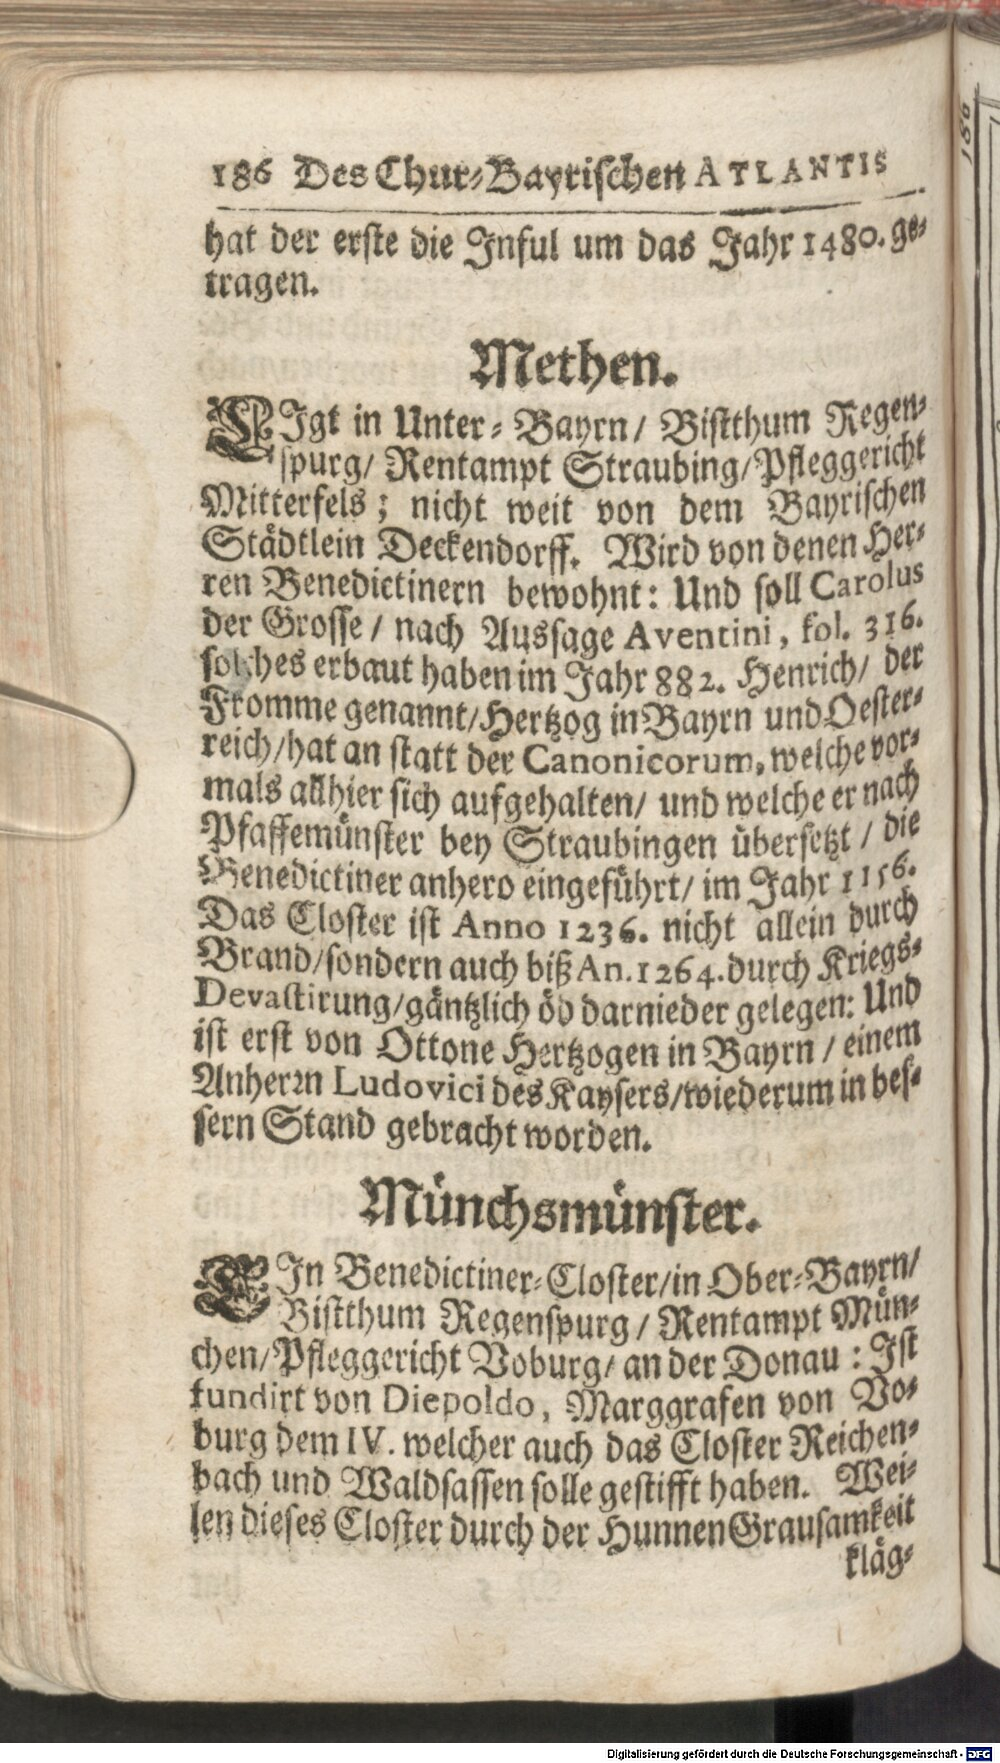 186 Des Chur-Bayrischen ATLANTIS
hat der erste die Inful um das Jahr 1480. ge-
tragen.
Methen.
LIgt in Unter-Bayrn/ Bistthum Regen-
spurg/ Rentampt Straubing/Pfleggericht
Mitterfels; nicht weit von dem Bayrischen
Städtlein Deckendorff. Wird von denen Her-
ren Benedictinern bewohnt: Und soll Carolus
der Grosse/ nach Aussage Aventini, fol. 316.
solches erbaut haben im Jahr 882. Henrich/ der
Fromme genannt/Hertzog in Bayrn und Oester-
reich/hat an statt der Canonicorum, welche vor-
mals allhier sich aufgehalten/ und welche er nach
Pfaffemünster bey Straubingen übersetzt/ die
Benedictiner anhero eingeführt/ im Jahr 1156.
Das Closter ist Anno 1236. nicht allein durch
Brand/sondern auch biß An. 1264. durch Kriegs-
Devastirung/gäntzlich öd darnieder gelegen: Und
ist erst von Ottone Hertzogen in Bayrn/ einem
Anherrn Ludovici des Kaysers/wiederum in bes-
sern Stand gebracht worden.
Münchsmünster.
EIn Benedictiner-Closter/in Ober-Bayrn/
Bistthum Regenspurg/ Rentampt Mün-
chen/Pfleggericht Voburg/ an der Donau: Ist
fundirt von Diepoldo, Marggrafen von Vo-
burg dem IV. welcher auch das Closter Reichen-
bach und Waldsassen solle gestifft haben. Wei-
len dieses Closter durch der Hunnen Grausamkeit
kläg-
186
Digitalisierung gefördert durch die Deutsche Forschungsgemeinschaft - DFG